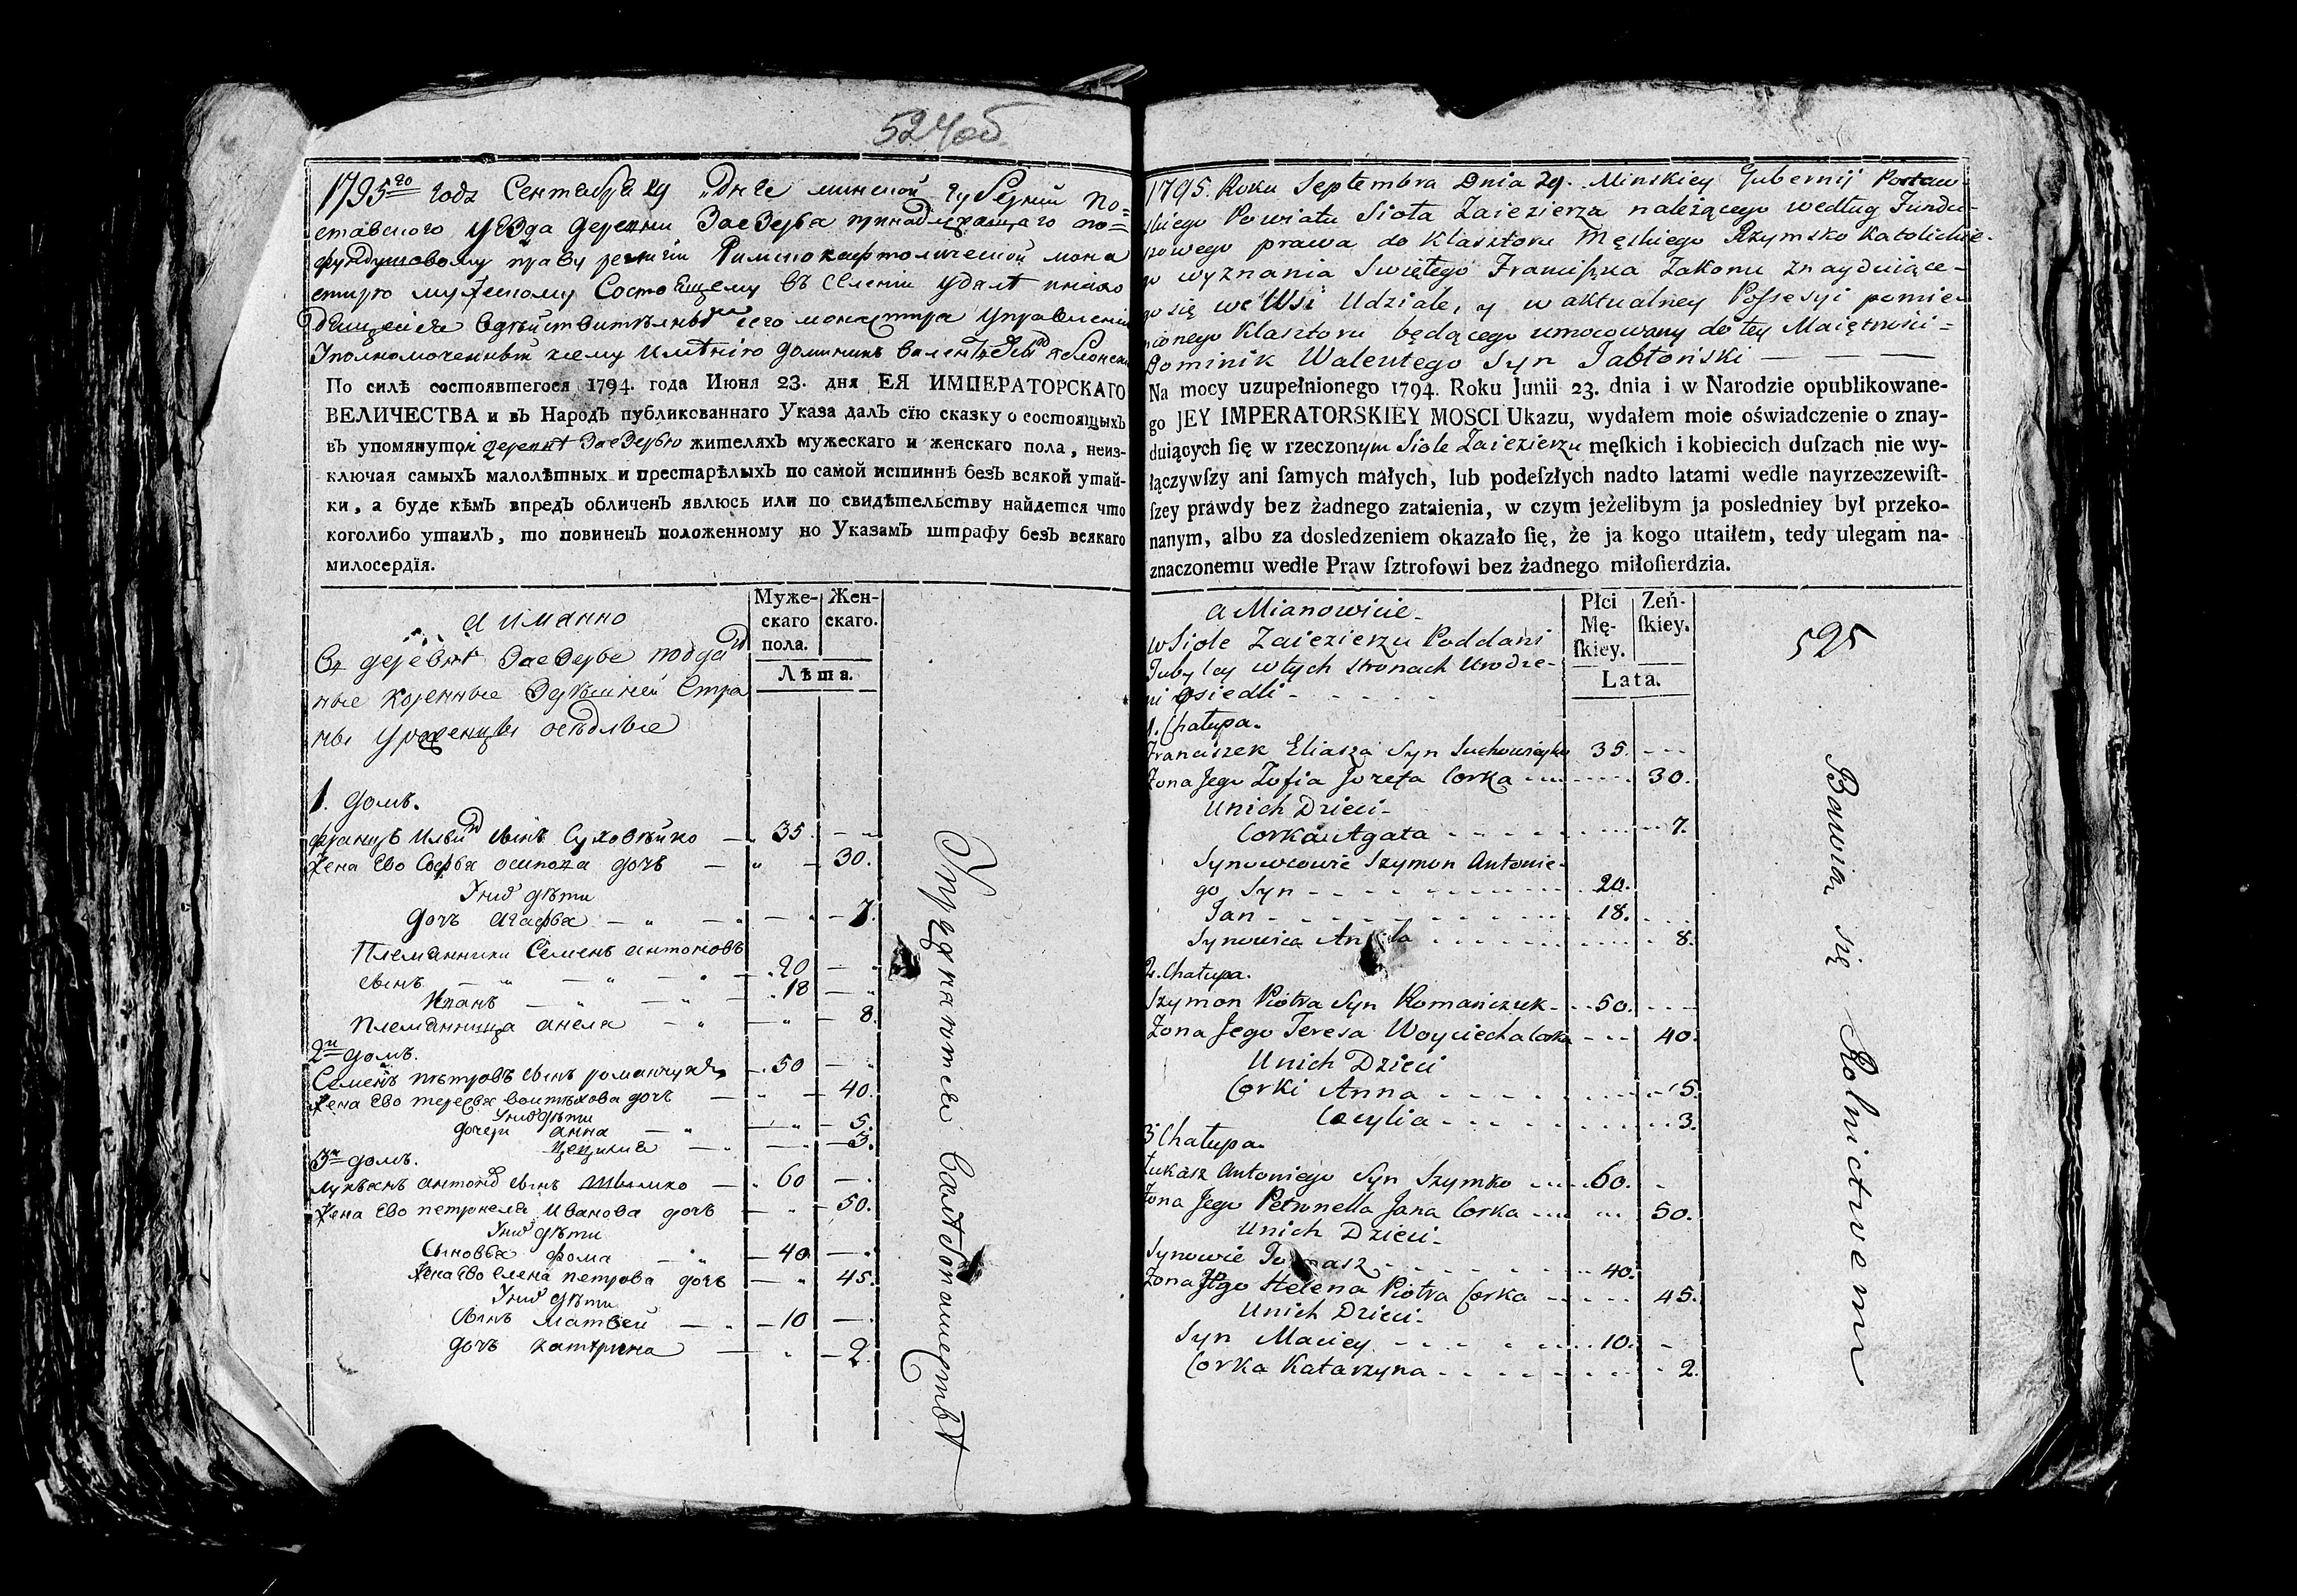 524 об
1795го года Сентября 29 дня минской губернии По=
ставского уезда деревни Заезерья принадлежащаго по=
фундушовому праву религии Римскокафтолической мона
стырю мужескому Состоящему въ селении Удяле
сего монастыря Управлении
Уполномоченный къ ему имѣнiю доминикъ
По силѣ состоявшегося 1794. года Июня 23. дня ЕЯ ИМПЕРАТОРСКАГО
ВЕЛИЧЕСТВА и въ НародЪ публикованнаго Указа далЪ сїю сказку о состоящыхЪ
въ упомянутой деревнѣ Заезерью жителяхЪ мужескаго и женскаго пола, неиз-
ключая самыхЪ малолѣтных и престарѣлыхЪ по самой истиннѣ безЪ всякой утай-
ки, а буде кѣмЪ впредЪ обличенЪ явлюсь или по свидѣтельству найдется что
коголибо утаилЪ, то повиненЪ положенному по УказамЪ штрафу безЪ всякаго
милосердїя.
а иманно
Муже-
скаго
пола.
Жен-
скаго.
Лѣта.
Въ деревнѣ Заезерье подда
ные коренные Здѣшней Стра
ны уроженцы осѣдлые
1. домъ.
францъ Ильи сынъ Суховѣйко — 35. —
Жена Ево Софья осипова дочь — 30.
У них дѣти
дочь агафья — 7.
Племянники Семенъ антоновъ
сынъ — 20 —
Иванъ — 18 —
племянница анеля — 8.
2й домъ.
Семенъ пѣтровъ сынъ романчукъ — 50 —
жена Ево тересья воитѣхова дочь — 40.
У них дѣти
дочери анна — 5.
цецилия — 3.
3й домъ.
лукьянъ антонов сынъ шимко — 60 —
Жена Ево петронеля Иванова дочь — 50.
У них дѣти
Сыновья фома — 40 —
Жена Ево елена петрова дочь — 45.
У них дѣти
Сынъ матвей — 10 —
дочь катерина — 2.
Упражняются въ хлебопашествѣ
1795. Roku Septembra Dnia 29. Minskiey Gubernij Postaw-
skiego Powiatu Sioła Zaiezierza należącego według Fundu-
szowego prawa do Klasztoru Męskiego Rzymsko Katolickie-
go wyznania Swiętego Franciszka Zakonu znayduiące-
go się we Wsi Udziale, y w aktualney Possesyi pomie-
nionego Klasztoru będącego umocowany do tey Maiętności =
Dominik Walentego Syn Jabłoński — — —
Na mocy uzupełnionego 1794. Roku Junii 23. dnia i w Narodzie opublikowane-
go JEY IMPERATORSKIEY MOSCI Ukazu, wydałem moie oświadczenie o znay-
duiących ſię w rzeczonym Siole Zaiezierzu męſkich i kobiecich duſzach nie wy-
łączywſzy ani ſamych małych, lub podeſzłych nadto latami wedle nayrzeczewiſt-
ſzey prawdy bez żadnego zataienia, w czym jeżelibym ja posledniey był przeko-
nanym, albo za dosledzeniem okazało ſię, że ja kogo utaiłem, tedy ulegam na-
znaczonemu wedle Praw ſztrofowi bez żadnego miłoſierdzia.
a Mianowicie.
Płci
Mę-
ſkiey.
Zeń-
ſkiey.
Lata.
525
w Siole Zaiezierzu Poddani
Tubylcy w tych stronach Urodze-
ni osiedli - - - - -
1. Chałupa.
Franciszek Eliasza Syn Suchowieyko 35. - - -
Zona Jego Zofia Jozefa Corka - - - 30.
U nich Dzieci-
Corka Agata - - - 7.
Synowcowie Szymon Antonie-
go Syn - - - 20.
Jan - - - 18. - - -
Synowica Aniela - - - 8.
2. Chałupa.
Szymon Piotra Syn Romańczuk - - 50. - - -
Zona Jego Teresa Woyciecha Corka - - - 40.
U nich Dzieci
Corki Anna - - - 5.
Cecylia - - - 3.
3 Chałupa.
Łukasz Antoniego Syn Szymko - - - 60. -
Zona Jego Petronella Jana Corka - - - 50.
U nich Dzieci-
Synowie Tomasz - - - 40.
Zona Jego Helena Piotra Corka - - - 45.
U nich Dzieci-
Syn Maciey - - - 10. -
Corka Katarzyna - - - 2.
Bawia się Rolnictwem